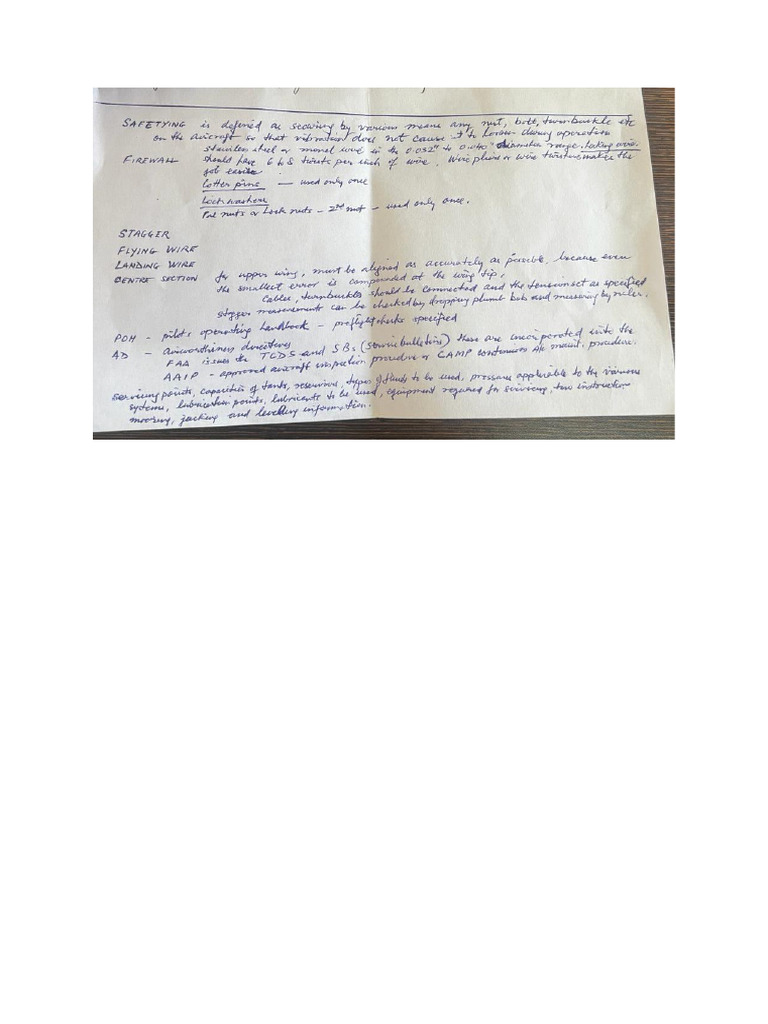 SAFETYING is defined as securing by various means any nut, bolt, turnbuckle etc
on the aircraft so that vibration does not cause it to loosen during operation
stainless steel or monel wire in the 0.032" to 0.040" diameter range.
FIREWALL should have 6 to 8 twists per inch of wire. Wire pliers or wire twisters makes the
job easier.
Cotter pins — used only once
Lock washers
Pal nuts or Lock nuts – 2nd nut – used only once.
STAGGER
FLYING WIRE
LANDING WIRE
CENTRE SECTION for upper wing, must be aligned as accurately as possible, because even
the smallest error is compounded at the wing tip.
Cables, turnbuckles should be connected and the tension set as specified
stagger measurements can be checked by dropping plumb bobs and measuring by ruler.
POH - pilots operating handbook – preflight checks specified
AD - airworthiness directives
FAA issues the TCDS and SBs (service bulletins) these are incorporated into the
AAIP - approved aircraft inspection procedure or CAMP continuous A/c maint. procedure.
Servicing points, capacities of tanks, reservoirs, types of fluids to be used, pressures applicable to the various
systems, lubrication points, lubricants to be used, equipment required for servicing, tow instructions
mooring, jacking and levelling information.